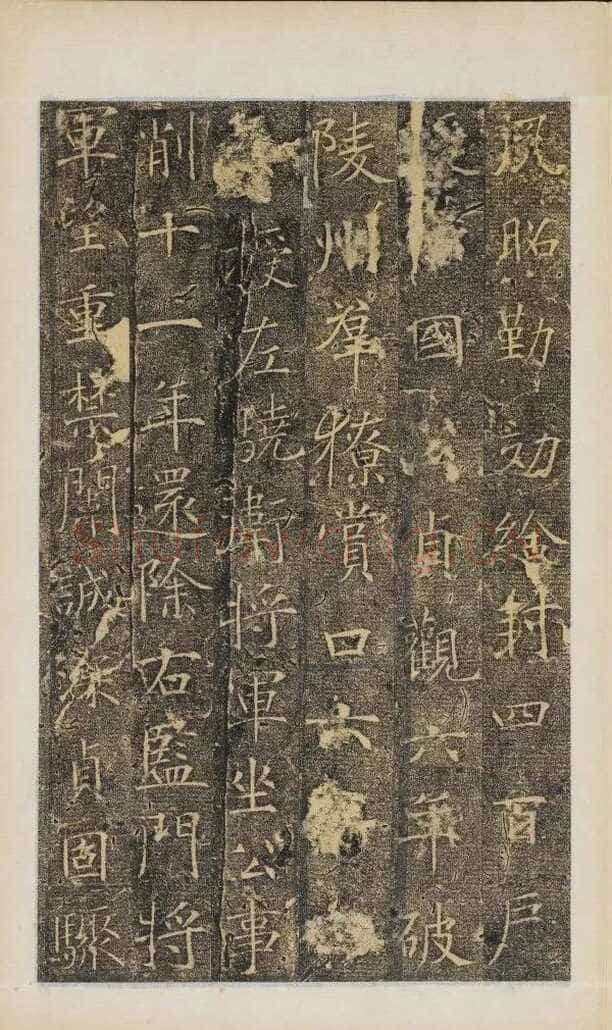 夙昭勤効給封四百戶
國公貞觀六年破
陵州羣獠賞口六
授左驍衛將軍坐公事
削十一年還除右監門將
軍望重禁闈誠深貞固驟